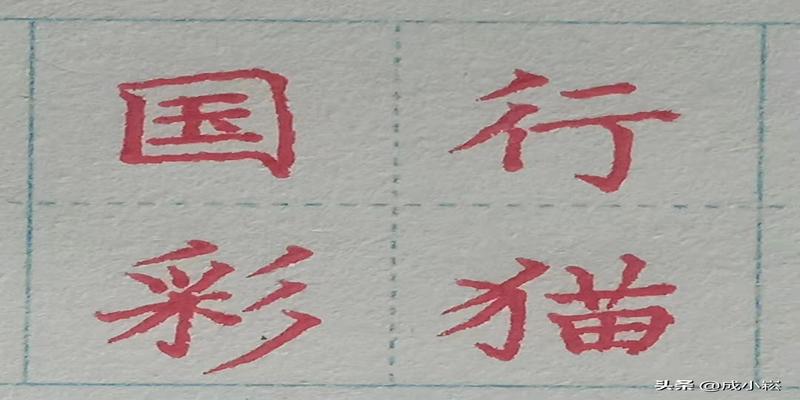 国行
彩猫
头条 @成小崧